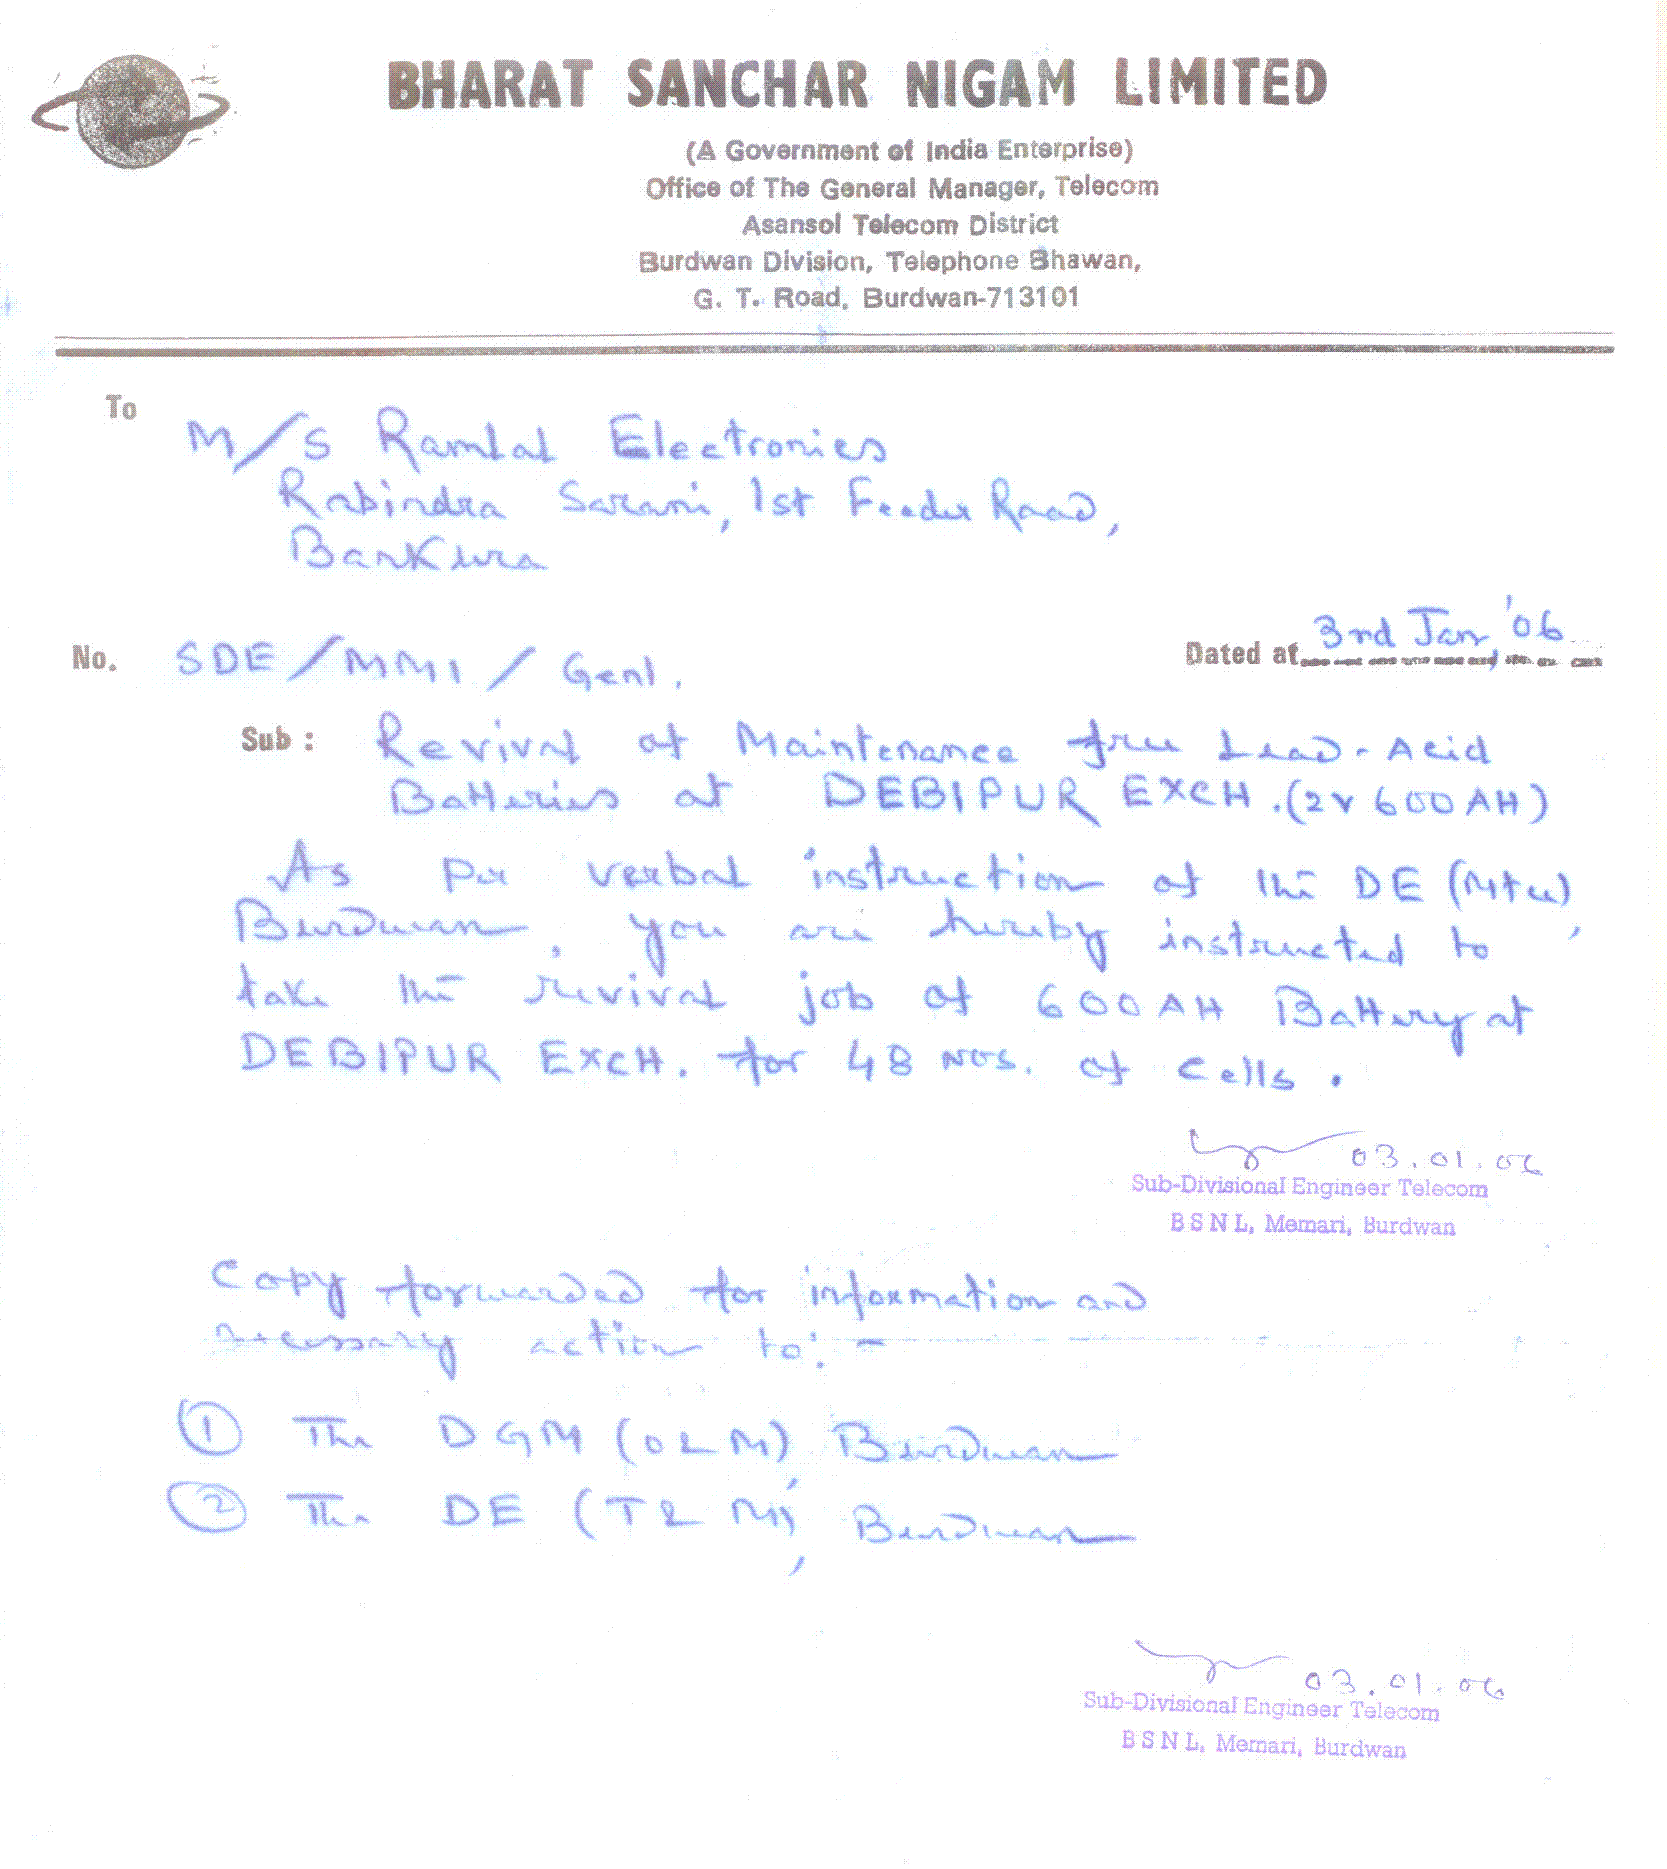 BHARAT SANCHAR NIGAM LIMITED
(A Government of India Enterprise)
Office of The General Manager, Telecom
Asansol Telecom District
Burdwan Division, Telephone Bhawan,
G. T. Road, Burdwan-713101
To
M/S Ramlal Electronics
Rabindra Sarani, 1st Feeder Road,
Bankura
No. SDE/MMI/Genl. Dated at 3rd Jan, '06
Sub : Revival of Maintenance free Lead-Acid
Batteries at DEBIPUR EXCH. (2V 600AH)
As per verbal instruction of the DE
Burdwan, you are hereby instructed to
take the revival job of 600AH Battery at
DEBIPUR EXCH. for 48 nos. of cells.
03.01.06
Sub-Divisional Engineer Telecom
BSNL, Memari, Burdwan
Copy forwarded for information and
necessary action to:-
1 The DGM (O&M), Burdwan
2 The DE (T&M), Burdwan
03.01.06
Sub-Divisional Engineer Telecom
BSNL, Memari, Burdwan